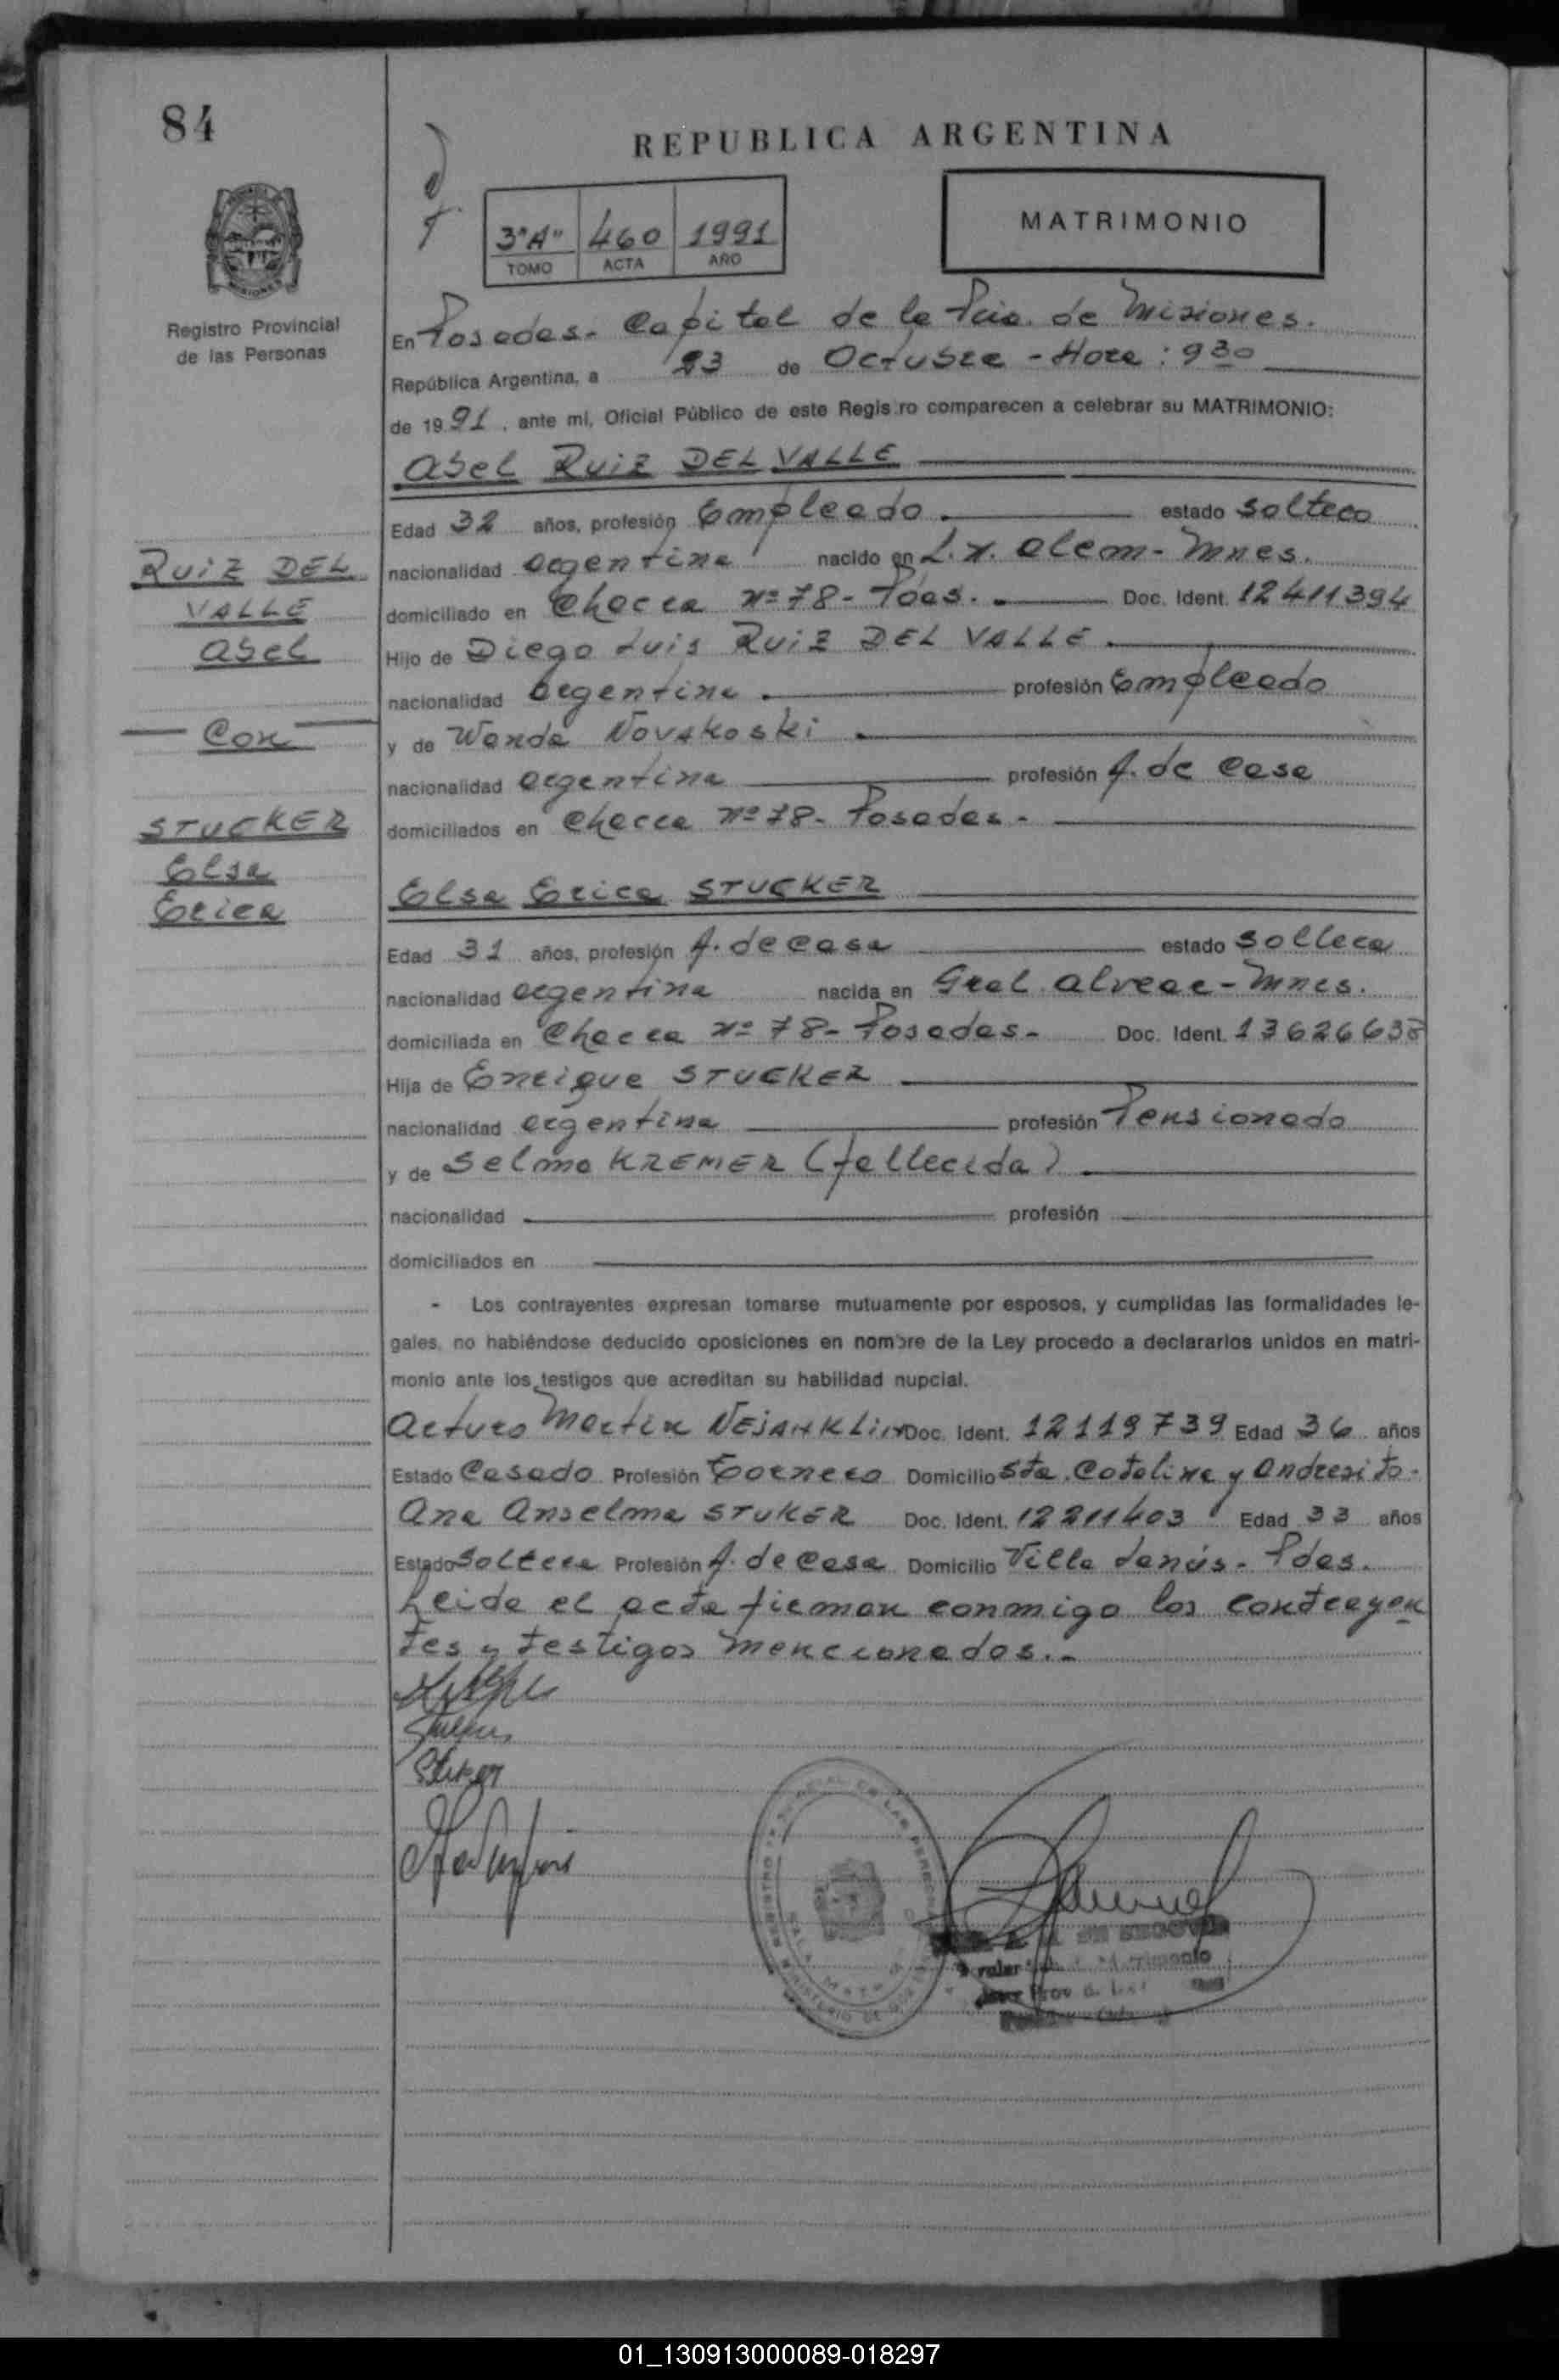 84
REPUBLICA ARGENTINA
3"A" 460 1991
TOMO ACTA AÑO
MATRIMONIO
Registro Provincial
de las Personas
En Posadas - Capital de la Pcia. de Misiones.
República Argentina, a 23 de Octubre - Hora: 9 30
de 1991, ante mi, Oficial Público de este Registro comparecen a celebrar su MATRIMONIO:
Abel Ruiz DEL VALLE
Edad 32 años, profesión Empleado estado soltero
nacionalidad argentina nacido en L.N. Alem - Mnes.
domiciliado en Chacra Nº 78 - Pdas. Doc. Ident. 12411394
Hijo de Diego Luis Ruiz DEL VALLE
nacionalidad argentina profesión Empleado
y de Wanda Novakoski
nacionalidad argentina profesión A. de Casa
domiciliados en Chacra Nº 78 - Posadas -
Elsa Erica STUCKER
Edad 31 años, profesión A. de Casa estado soltera
nacionalidad argentina nacida en Gral. Alvear - Mnes.
domiciliada en Chacra Nº 78 - Posadas - Doc. Ident. 13626638
Hija de Enrique STUCKER
nacionalidad argentina profesión Pensionado
y de Selma KREMER (fallecida)
nacionalidad profesión
domiciliados en
- Los contrayentes expresan tomarse mutuamente por esposos, y cumplidas las formalidades le-
gales, no habiéndose deducido oposiciones en nombre de la Ley procedo a declararlos unidos en matri-
monio ante los testigos que acreditan su habilidad nupcial.
Arturo Martin Doc. Ident. 12119739 Edad 36 años
Estado Casado Profesión Tornero Domicilio Sta. Catalina y Andresito.
Ana Anselma STUKER Doc. Ident. 12211403 Edad 33 años
Estado Soltera Profesión A. de Casa Domicilio Villa Lanús - Pdas.
Leida el acta firman conmigo los contrayen
tes y testigos mencionados.-
Stuker
RUIZ DEL
VALLE
Abel
Con
STUCKER
Elsa
Erica
01_130913000089-018297